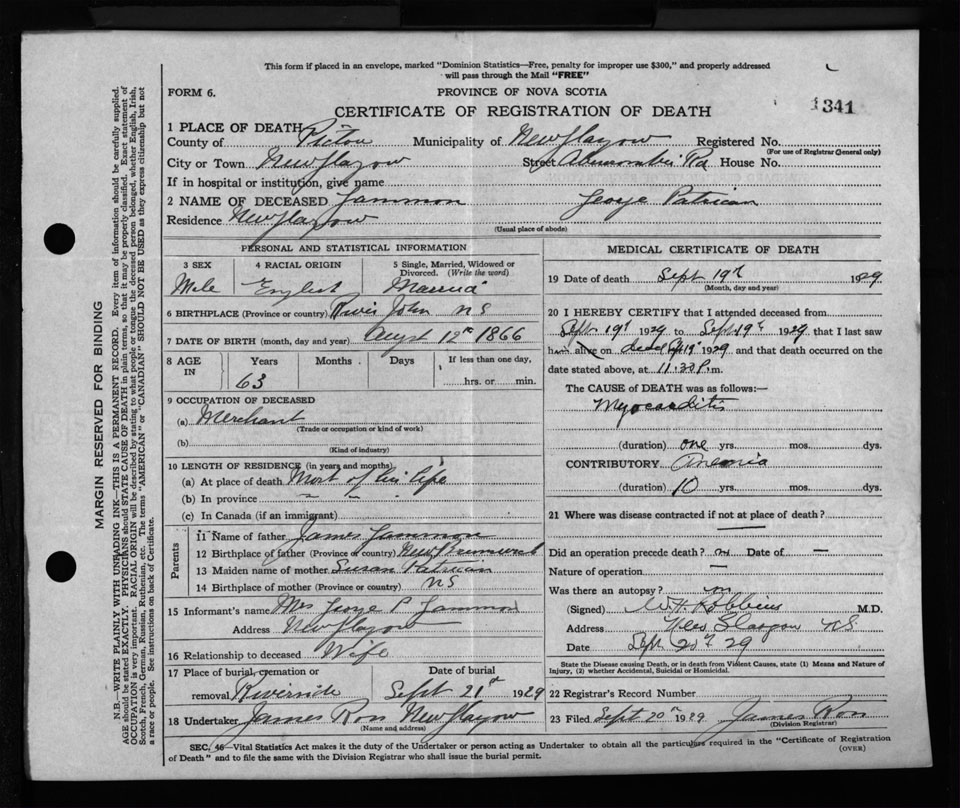 This form if placed in an envelope, marked "Dominion Statistics—Free, penalty for improper use $300," and properly addressed
will pass through the Mail "FREE"
FORM 6.
PROVINCE OF NOVA SCOTIA
CERTIFICATE OF REGISTRATION OF DEATH
341
1 PLACE OF DEATH
County of Pictou Municipality of New Glasgow Registered No.
(For use of Registrar General only)
City or Town New Glasgow Street Abercrombie Rd House No.
If in hospital or institution, give name
2 NAME OF DECEASED Gammon George Patrican
Residence New Glasgow
(Usual place of abode)
PERSONAL AND STATISTICAL INFORMATION
3 SEX 4 RACIAL ORIGIN 5 Single, Married, Widowed or
Divorced. (Write the word)
Male English Married
6 BIRTHPLACE (Province or country) River John NS
7 DATE OF BIRTH (month, day and year) Augst 12th 1866
8 AGE IN Years Months Days If less than one day,
63 hrs. or min.
9 OCCUPATION OF DECEASED
(a) Merchant
(Trade or occupation or kind of work)
(b)
(Kind of industry)
10 LENGTH OF RESIDENCE (in years and months)
(a) At place of death Most of his life
(b) In province " " "
(c) In Canada (if an immigrant)
Parents
11 Name of father James Gammon
12 Birthplace of father (Province or country) New Brunswick
13 Maiden name of mother Susan Patrican
14 Birthplace of mother (Province or country) NS
15 Informant's name Mrs George P Gammon
Address New Glasgow
16 Relationship to deceased Wife
17 Place of burial, cremation or Date of burial
removal Riverside Sept 21st 1929
18 Undertaker James Ross New Glasgow
(Name and address)
MEDICAL CERTIFICATE OF DEATH
19 Date of death Sept 19th 1929
(Month, day and year)
20 I HEREBY CERTIFY that I attended deceased from
Sept 19th 1929 to Sept 19th 1929 that I last saw
him alive on dead Sept 19th 1929 and that death occurred on the
date stated above, at 11.30 P.m.
The CAUSE OF DEATH was as follows:—
Myocarditis
(duration) one yrs. mos. dys.
CONTRIBUTORY Anemia
(duration) 10 yrs. mos. dys.
21 Where was disease contracted if not at place of death?
Did an operation precede death? no Date of —
Nature of operation —
Was there an autopsy? no
(Signed) W. H. Robbins M.D.
Address New Glasgow N.S.
Date Sept 20th 29
State the Disease causing Death, or in death from Violent Causes, state (1) Means and Nature of
Injury, (2) whether Accidental, Suicidal or Homicidal.
22 Registrar's Record Number
23 Filed Sept 20th 1929 James Ross
(Division Registrar)
SEC. 46—Vital Statistics Act makes it the duty of the Undertaker or person acting as Undertaker to obtain all the particulars required in the "Certificate of Registration
of Death" and to file the same with the Division Registrar who shall issue the burial permit.
(OVER)
MARGIN RESERVED FOR BINDING
N.B.—WRITE PLAINLY WITH UNFADING INK—THIS IS A PERMANENT RECORD. Every item of information should be carefully supplied.
AGE should be stated EXACTLY. PHYSICIANS should STATE CAUSE OF DEATH in plain terms, so that it may be properly classified. Exact statement of
OCCUPATION is very important. RACIAL ORIGIN will be described by stating to what people or tongue the deceased person belonged, whether English, Irish,
Scotch, French, German, Russian, Ruthenian, etc. The terms "AMERICAN" or "CANADIAN" SHOULD NOT BE USED as they express citizenship but not
a race or people. See instructions on back of Certificate.